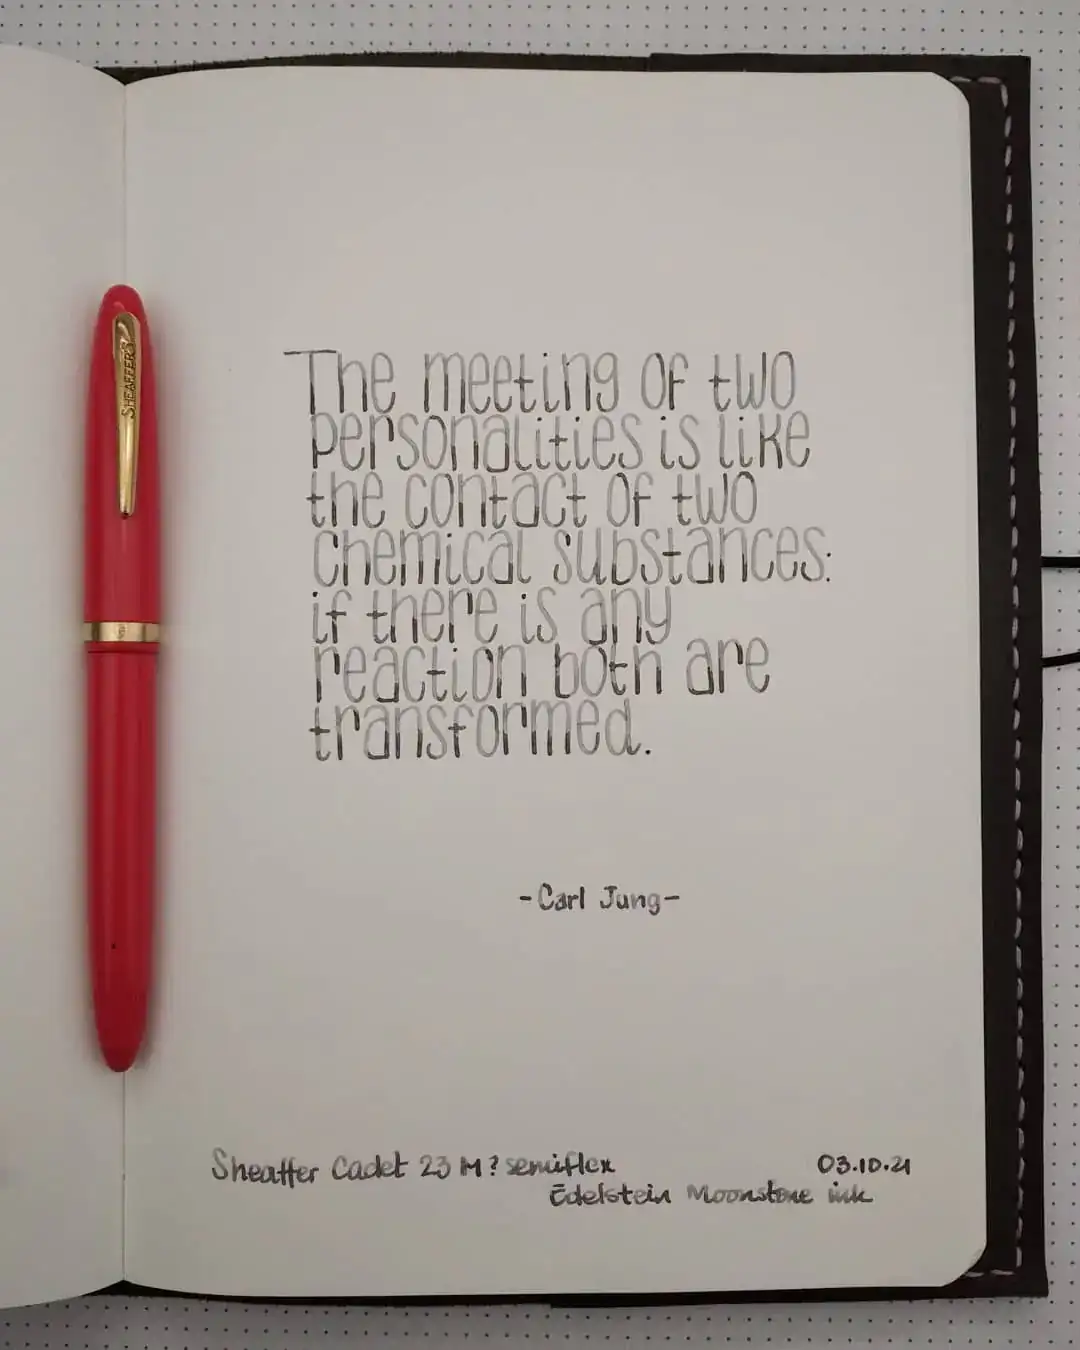 SHEAFFER'S
The meeting of two
personalities is like
the contact of two
chemical substances:
if there is any
reaction both are
transformed.
-Carl Jung-
Sheaffer Cadet 23 M? semiflex
03.10.21
Edelstein Moonstone ink